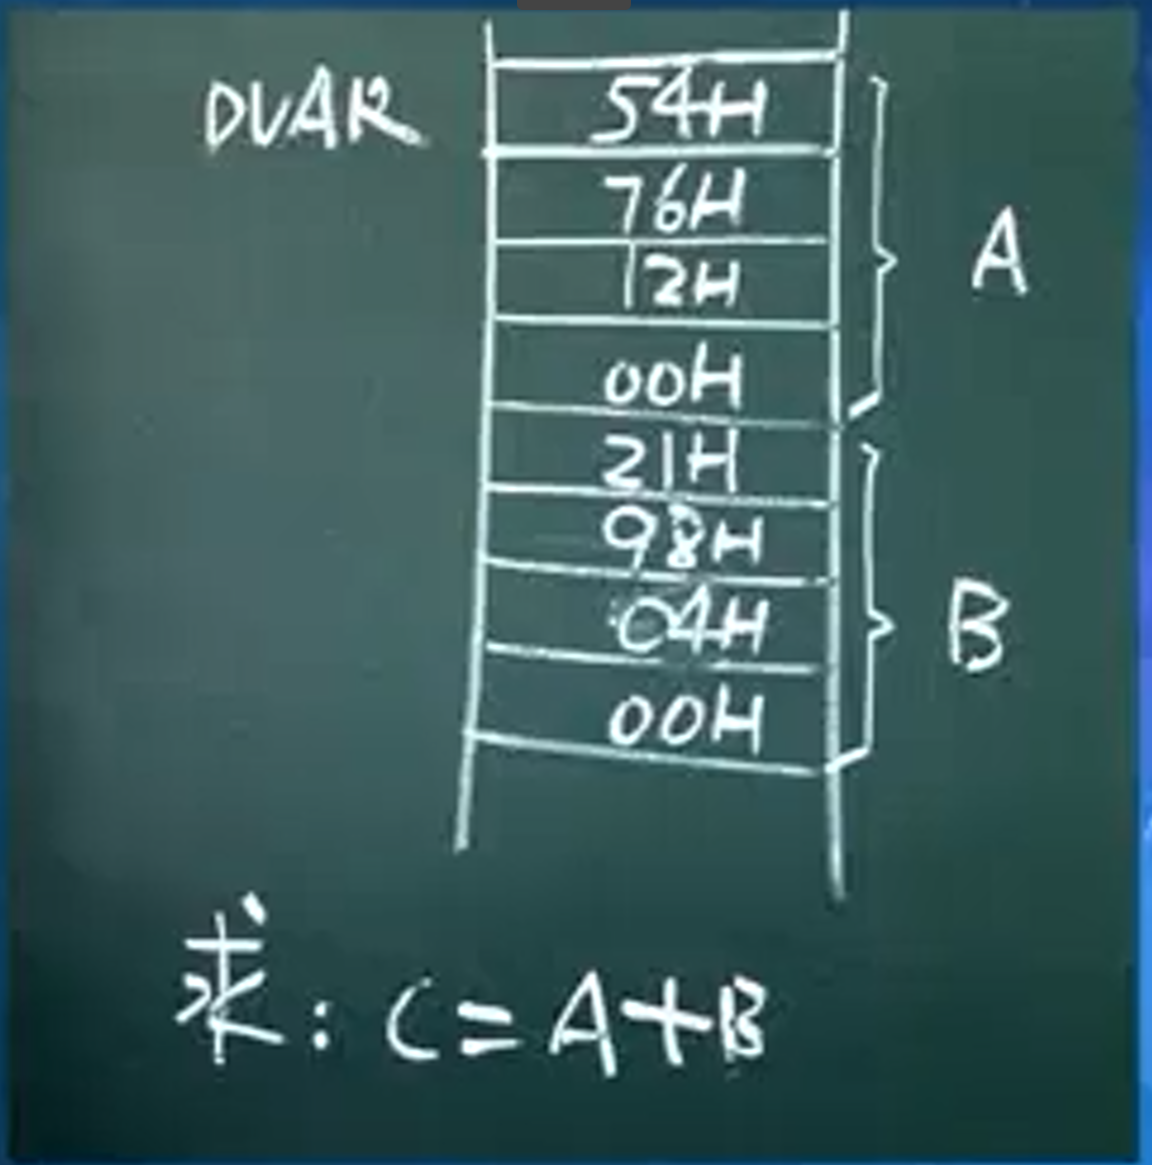 DVAR 54H
76H
12H
00H
A
21H
98H
04H
00H
B
求: C=A+B